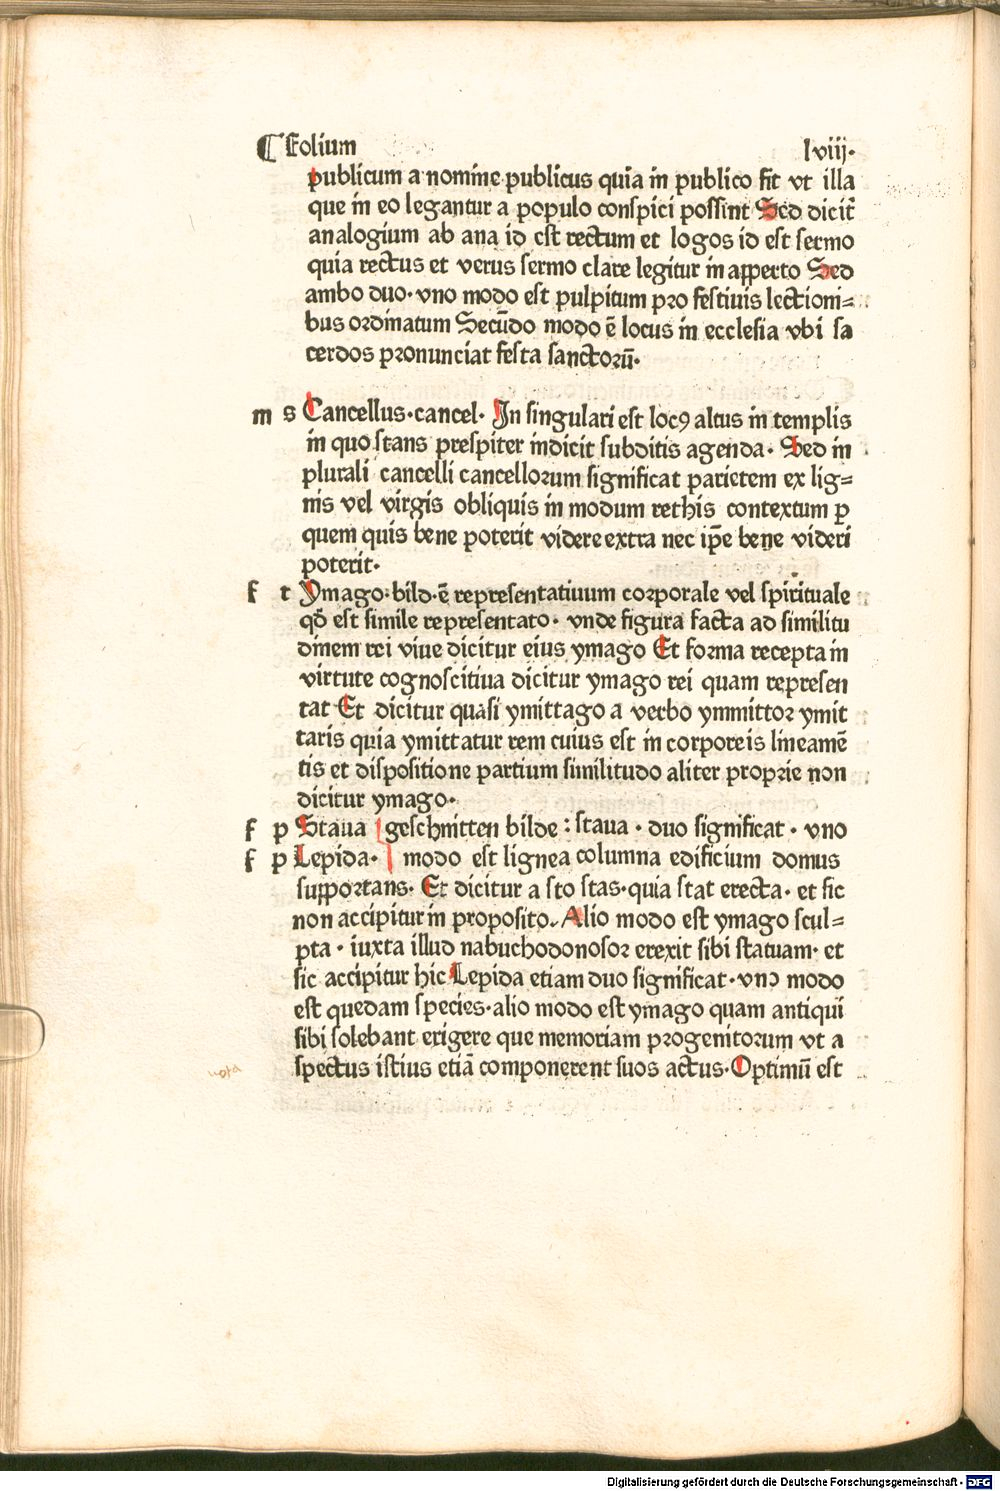 ¶ Folium lviij.
publicum a nomine publicus quia in publico fit vt illa
que in eo legantur a populo conspici possint Sed dicit̃
analogium ab ana id est rectum et logos id est sermo
quia rectus et verus sermo clare legitur in apperto Sed
ambo duo. vno modo est pulpitum pro festiuis lectioni=
bus ordinatum Secũdo modo ē locus in ecclesia vbi sa
cerdos pronunciat festa sanctorũ.
m s Cancellus. cancel. In singulari est locꝰ altus in templis
in quo stans prespiter indicit subditis agenda. Sed in
plurali cancelli cancellorum significat parietem ex lig=
nis vel virgis obliquis in modum rethis contextum ꝑ
quem quis bene poterit videre extra nec ip̄e bene videri
poterit.
f t Ymago. bild. ē representatiuum corporale vel spirituale
qd̄ est simile representato. vnde figura facta ad similitu
dinem rei viue dicitur eius ymago Et forma recepta in
virtute cognoscitiua dicitur ymago rei quam represen
tat Et dicitur quasi ymittago a verbo ymmittor ymit
taris quia ymittatur rem cuius est in corporeis lineamē
tis et dispositione partium similitudo aliter proprie non
dicitur ymago.
f p Staua geschnitten bilde : staua . duo significat . vno
f p Lepida. modo est lignea columna edificium domus
supportans. Et dicitur a sto stas. quia stat erecta. et sic
non accipitur in proposito. Alio modo est ymago scul=
pta . iuxta illud nabuchodonosor erexit sibi statuam. et
sic accipitur hic Lepida etiam duo significat. vno modo
est quedam species. alio modo est ymago quam antiqui
sibi solebant erigere que memoriam progenitorum vt a
spectus istius etiā componerent suos actus. Optimū est
nota
Digitalisierung gefördert durch die Deutsche Forschungsgemeinschaft - DFG